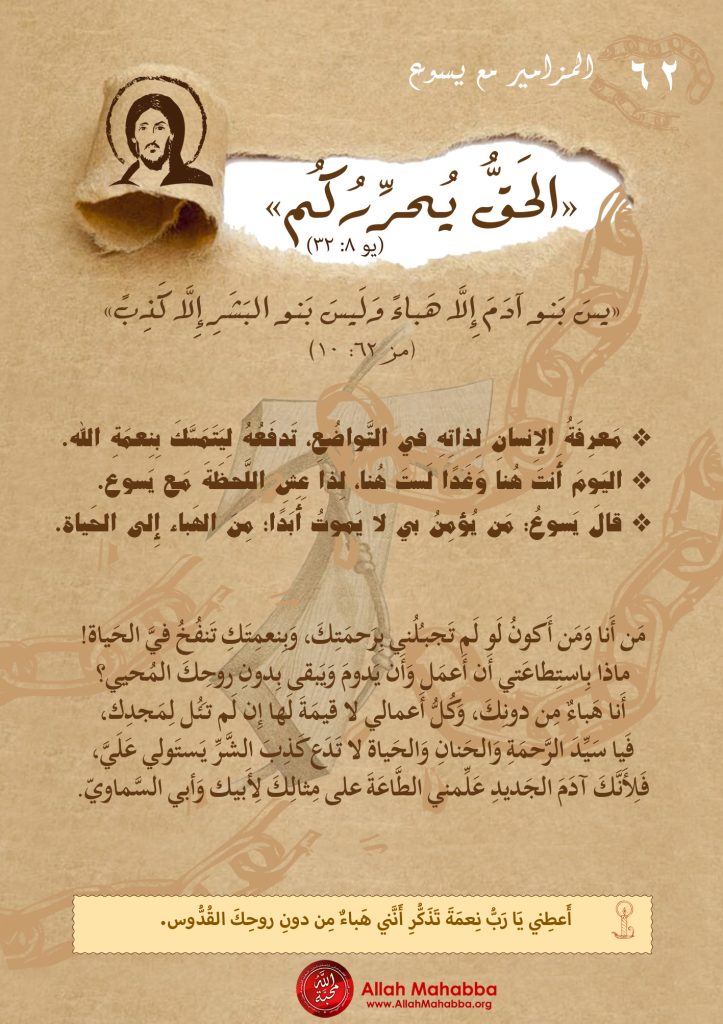 ٦٢ المزامير مع يسوع
«الحَقُّ يُحرِّرُكُم»
(يو ٨: ٣٢)
«يسَ بَنو آدَمَ إِلَّا هَباءً وَلَيسَ بَنو البَشَرِ إِلَّا كَذِبً»
(مز ٦٢: ١٠)
❖ مَعرِفَةُ الإنسانِ لِذاتِهِ في التَّواضُعِ، تَدفَعُهُ لِيَتَمَسَّكَ بِنِعمَةِ الله.
❖ اليَومَ أَنتَ هُنا وَغَدًا لستَ هُنا، لِذا عِشِ اللَّحظَةَ مَع يَسوع.
❖ قالَ يَسوعُ: مَن يُؤمِنُ بي لا يَموتُ أَبَدًا؛ مِن الهَباء إِلى الحَياة.
مَن أَنا وَمَن أَكونُ لَو لَم تَجبُلُني بِرَحمَتِكَ، وَبِنعمِتَكِ تَنفُخُ فيَّ الحَياة!
ماذا بِاستِطاعَتي أَن أَعمَل وَأَن يَدومَ وَيَبقى بِدونِ روحِكَ المُحيي؟
أَنا هَباءٌ مِن دونِكَ، وَكُلُّ أَعمالي لا قيمَةَ لَها إِن لَم تَئُل لِمَجدِك،
فَيا سَيِّدَ الرَّحمَةِ والحَنانِ والحَياة لا تَدَع كَذِبَ الشَّرِّ يَستَولي عَلَيَّ،
فَلِأَنَّكَ آدَمَ الجَديدِ عَلِّمني الطَّاعَةَ على مِثالِكَ لِأَبيك وَأبي السَّماويّ.
أَعطِني يَا رَبُّ نِعمَةَ تَذَكُّرِ أَنَّني هَباءٌ مِن دونِ روحِكَ القُدُّوس.
الله محبّة
Allah Mahabba
www.AllahMahabba.org